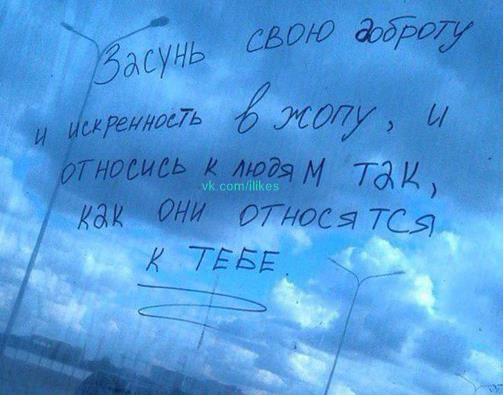 Засунь свою доброту
и искренность в жопу, и
относись к людям так,
vk.com/ilikes
как они относятся
к тебе.